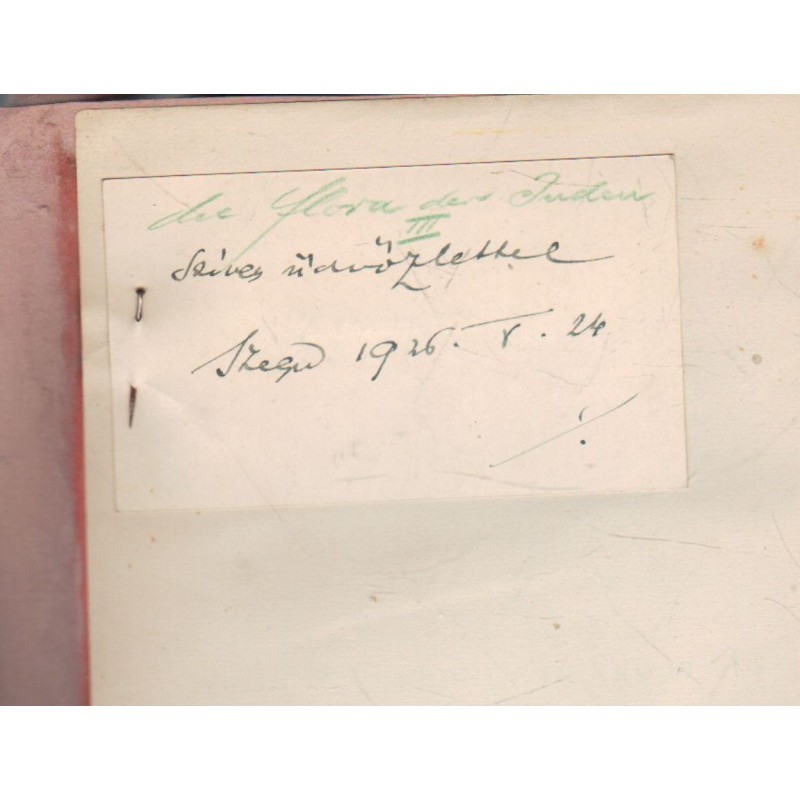 die Flora der Juden
III
Szíves üdvözlettel
Szeged 1926. V. 24
./.